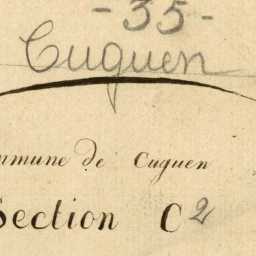 -35-
Cuguen
mmune de Cuguen
Section C2